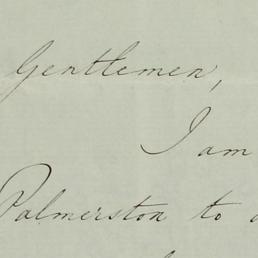 Gentlemen,
I am
Palmerston to